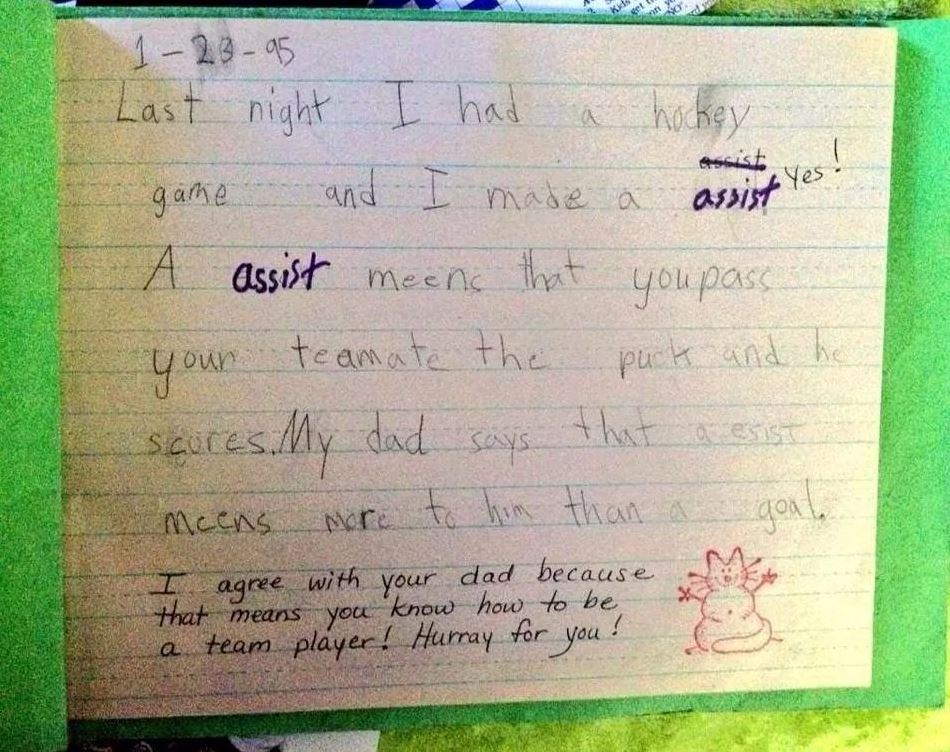 1-23-95
Last night I had a hockey
assist
game and I made a assist Yes!
A assist meens that you pass
your teamate the puck and he
scores. My dad says that a esist
meens more to him than a goal.
I agree with your dad because
that means you know how to be
a team player! Hurray for you!